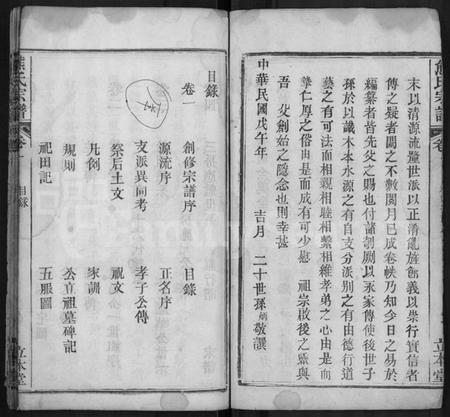 熊氏宗譜
卷一
立本堂
末以清源流釐世派以正淆亂旌節義以崇行實信者
傳之疑者闕之不數閱月已成卷帙乃知今日之易於
編纂者皆先父之賜也付諸剞劂以永家傳使後世子
孫於以識木本水源之有自支分派別之有由德行道
藝之有可法而相親相睦相繫相維孝弟之心由是而
肇仁厚之俗由是而成有可少慰 祖宗啟後之靈與
吾 父創始之隱念也則幸甚
中華民國戊午年 吉月 二十世孫炳敬譔
目錄
卷一
創修宗譜序 目錄
源流序 正名序
支派異同考 孝子公傳
祭后土文 祝文
凡例 家訓
規則 公立祖墓碑記
祀田記 五服圖
熊氏宗譜
卷一
目錄
立本堂